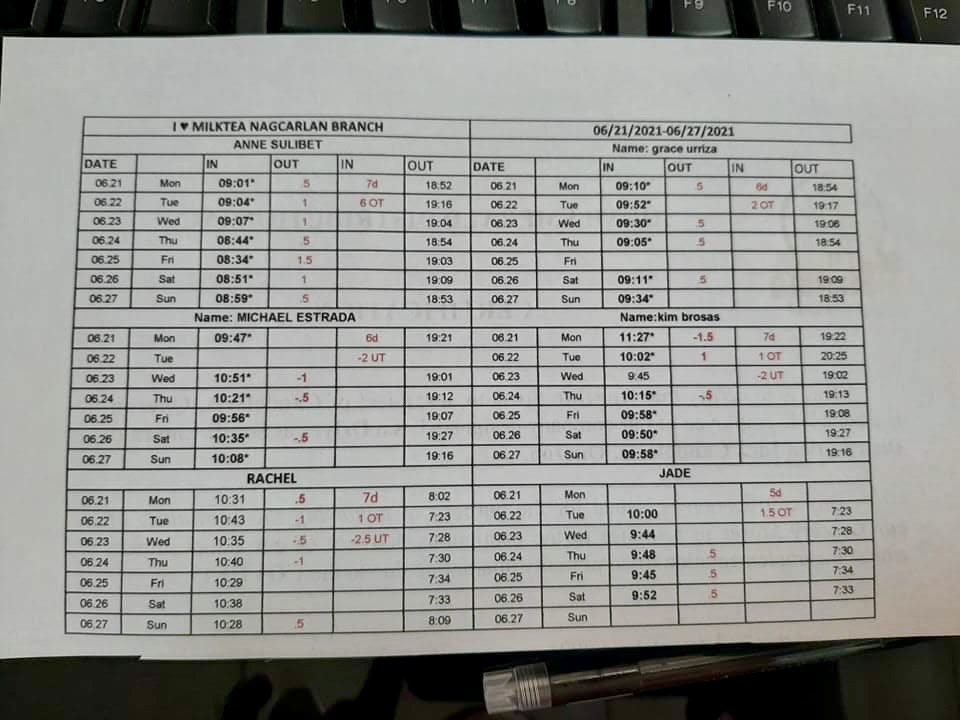 F9 F10 F11 F12
I ♥ MILKTEA NAGCARLAN BRANCH 06/21/2021-06/27/2021
ANNE SULIBET Name: grace urriza
DATE IN OUT IN OUT DATE IN OUT IN OUT
06.21 Mon 09:01* .5 7d 18:52 06.21 Mon 09:10* .5 6d 18:54
06.22 Tue 09:04* 1 6 OT 19:16 06.22 Tue 09:52* 2 OT 19:17
06.23 Wed 09:07* 1 19:04 06.23 Wed 09:30* .5 19:06
06.24 Thu 08:44* .5 18:54 06.24 Thu 09:05* .5 18:54
06.25 Fri 08:34* 1.5 19:03 06.25 Fri
06.26 Sat 08:51* 1 19:09 06.26 Sat 09:11* .5 19:09
06.27 Sun 08:59* .5 18:53 06.27 Sun 09:34* 18:53
Name: MICHAEL ESTRADA Name:kim brosas
06.21 Mon 09:47* 6d 19:21 06.21 Mon 11:27* -1.5 7d 19:22
06.22 Tue -2 UT 06.22 Tue 10:02* 1 1 OT 20:25
06.23 Wed 10:51* -1 19:01 06.23 Wed 9:45 -2 UT 19:02
06.24 Thu 10:21* -.5 19:12 06.24 Thu 10:15* -.5 19:13
06.25 Fri 09:56* 19:07 06.25 Fri 09:58* 19:08
06.26 Sat 10:35* -.5 19:27 06.26 Sat 09:50* 19:27
06.27 Sun 10:08* 19:16 06.27 Sun 09:58* 19:16
RACHEL JADE
06.21 Mon 10:31 .5 7d 8:02 06.21 Mon 5d
06.22 Tue 10:43 -1 1 OT 7:23 06.22 Tue 10:00 1.5 OT 7:23
06.23 Wed 10:35 -.5 -2.5 UT 7:28 06.23 Wed 9:44 7:28
06.24 Thu 10:40 -1 7:30 06.24 Thu 9:48 .5 7:30
06.25 Fri 10:29 7:34 06.25 Fri 9:45 .5 7:34
06.26 Sat 10:38 7:33 06.26 Sat 9:52 .5 7:33
06.27 Sun 10:28 .5 8:09 06.27 Sun